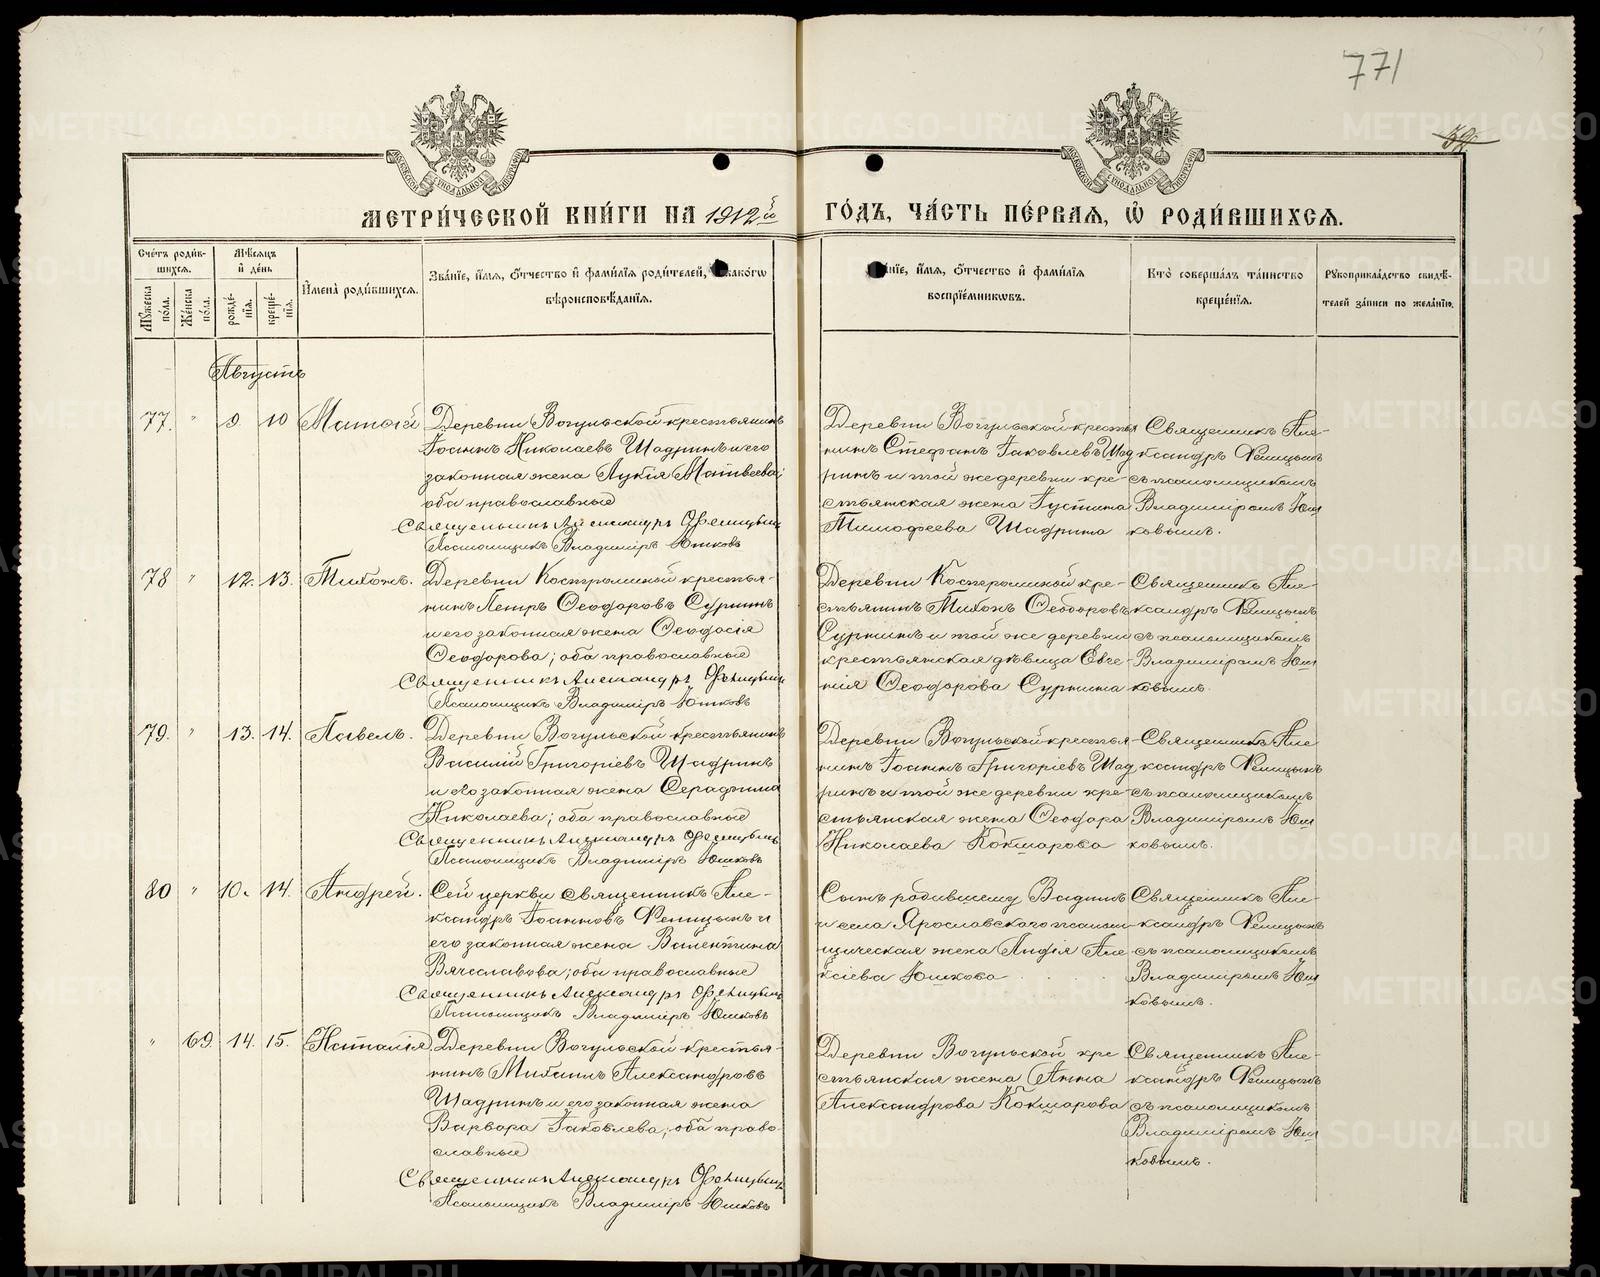 771
МОСКОВСКОЙ СѴНОДАЛЬНОЙ ТИПОГРАФІИ
МОСКОВСКОЙ СѴНОДАЛЬНОЙ ТИПОГРАФІИ
МЕТРИ́ЧЕСКОЙ КНИ́ГИ НА 1912й ГО́ДЪ, ЧА́СТЬ ПЕ́РВАЯ, Ѡ҆ РОДИ́ВШИХСЯ.
Сче́тъ роди́в-
шихся.
Мꙋ́жеска по́ла.
Же́нска по́ла.
Мѣ́сяцъ и҆ де́нь
рожде́-
нїя.
креще́-
нїя.
И҆мена̀ роди́вшихся.
Зва́нїе, и҆́мя, ѻ҆́тчество и҆ фами́лїя роди́телей, и҆ како́гѡ
вѣроисповѣ́данїя.
Зва́нїе, и҆́мя, ѻ҆́тчество и҆ фами́лїя
воспрїе́мникѡвъ.
Кто̀ соверша́лъ та́инство
креще́нїя.
Рꙋкоприкла́дство свидѣ́-
телей за́писи по жела́нїю.
Августъ
77. " 9. 10 Матѳій
Деревни Вогульской крестьянинъ
Іоаннъ Николаевъ Шадринъ и его
законная жена Лукія Матвеева;
оба православные
Священникъ Александръ Ѳеницынъ
Псаломщикъ Владиміръ Юшковъ
Деревни Вогульской крестья
нинъ Стефанъ Іаковлевъ Шад
ринъ и той же деревни кре-
стьянская жена Іустина
Тимофеева Шадрина
Священникъ Але-
ксандръ Ѳеницынъ
съ псаломщикомъ
Владиміромъ Юш
ковымъ.
78 " 12. 13. Тихонъ.
Деревни Костроминой крестья-
нинъ Петръ Ѳеодоровъ Суринъ
и его законная жена Ѳеодосія
Ѳеодорова; оба православные
Священникъ Александръ Ѳеницынъ
Псаломщикъ Владиміръ Юшковъ
Деревни Костроминой кре-
стьянинъ Тихонъ Ѳеодоровъ
Суринъ и той же деревни
крестьянская дѣвица Евге-
нія Ѳеодорова Сурнина
Священникъ Але-
ксандръ Ѳеницынъ
съ псаломщикомъ
Владиміромъ Юш
ковымъ.
79. " 13. 14. Павелъ.
Деревни Вогульской крестьянинъ
Василій Григоріевъ Шадринъ
и его законная жена Серафима
Николаева; оба православные
Священникъ Александръ Ѳеницынъ
Псаломщикъ Владиміръ Юшковъ
Деревни Вогульской крестья-
нинъ Іоаннъ Григоріевъ Шад
ринъ и той же деревни кре-
стьянская жена Ѳеодора
Николаева Кокшарова
Священникъ Але
ксандръ Ѳеницынъ
съ псаломщикомъ
Владиміромъ Юш
ковымъ.
80 " 10. 14. Андрей.
Сей церкви священникъ Але-
ксандръ Іоанновъ Ѳеницынъ и
его законная жена Валентина
Вячеславова; оба православные
Священникъ Александръ Ѳеницынъ
Псаломщикъ Владиміръ Юшковъ
Сынъ родившему Вадимъ
и села Ярославского псалом-
щическая жена Анфія Але
ксіева Юшкова
Священникъ Але-
ксандръ Ѳеницынъ
съ псаломщикомъ
Владиміромъ Юш
ковымъ.
" 69. 14. 15. Наталія.
Деревни Вогульской крестья-
нинъ Михаилъ Александровъ
Шадринъ и его законная жена
Варвара Іаковлева; оба право-
славные
Священникъ Александръ Ѳеницынъ
Псаломщикъ Владиміръ Юшковъ
Деревни Вогульской кре-
стьянская жена Анна
Александрова Кокшарова
Священникъ Але-
ксандръ Ѳеницынъ
съ псаломщикомъ
Владиміромъ Юш
ковымъ.
METRIKI.GASO-URAL.RU